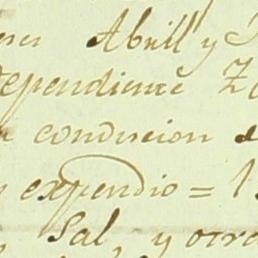 Abrill y
dependiente
conducion
expendio = 1
Sal, y otra